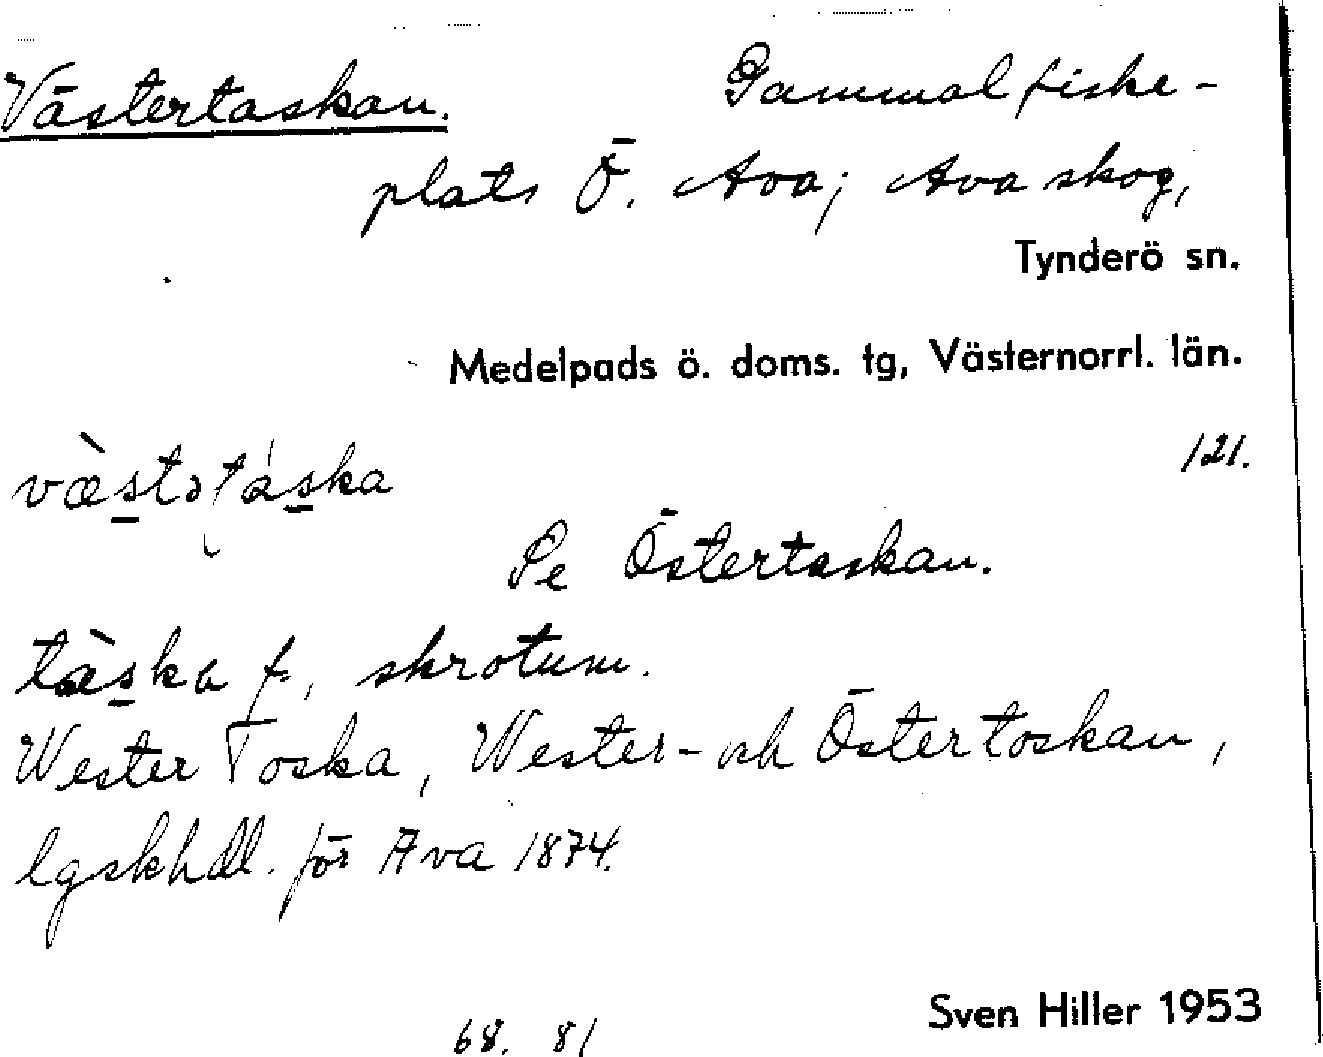 Västertaskan. Gammal fiske-
plats Ö. Ava; Ava skog,
Tynderö sn.
Medelpads ö. doms. tg, Västernorrl. län.
121.
væ̀stətáska
Se Östertaskan.
tæ̀ska f, skrotum.
Wester Toska, Wester- och Östertoskan,
lgskhdl. för Ava 1874.
Sven Hiller 1953
68. 81